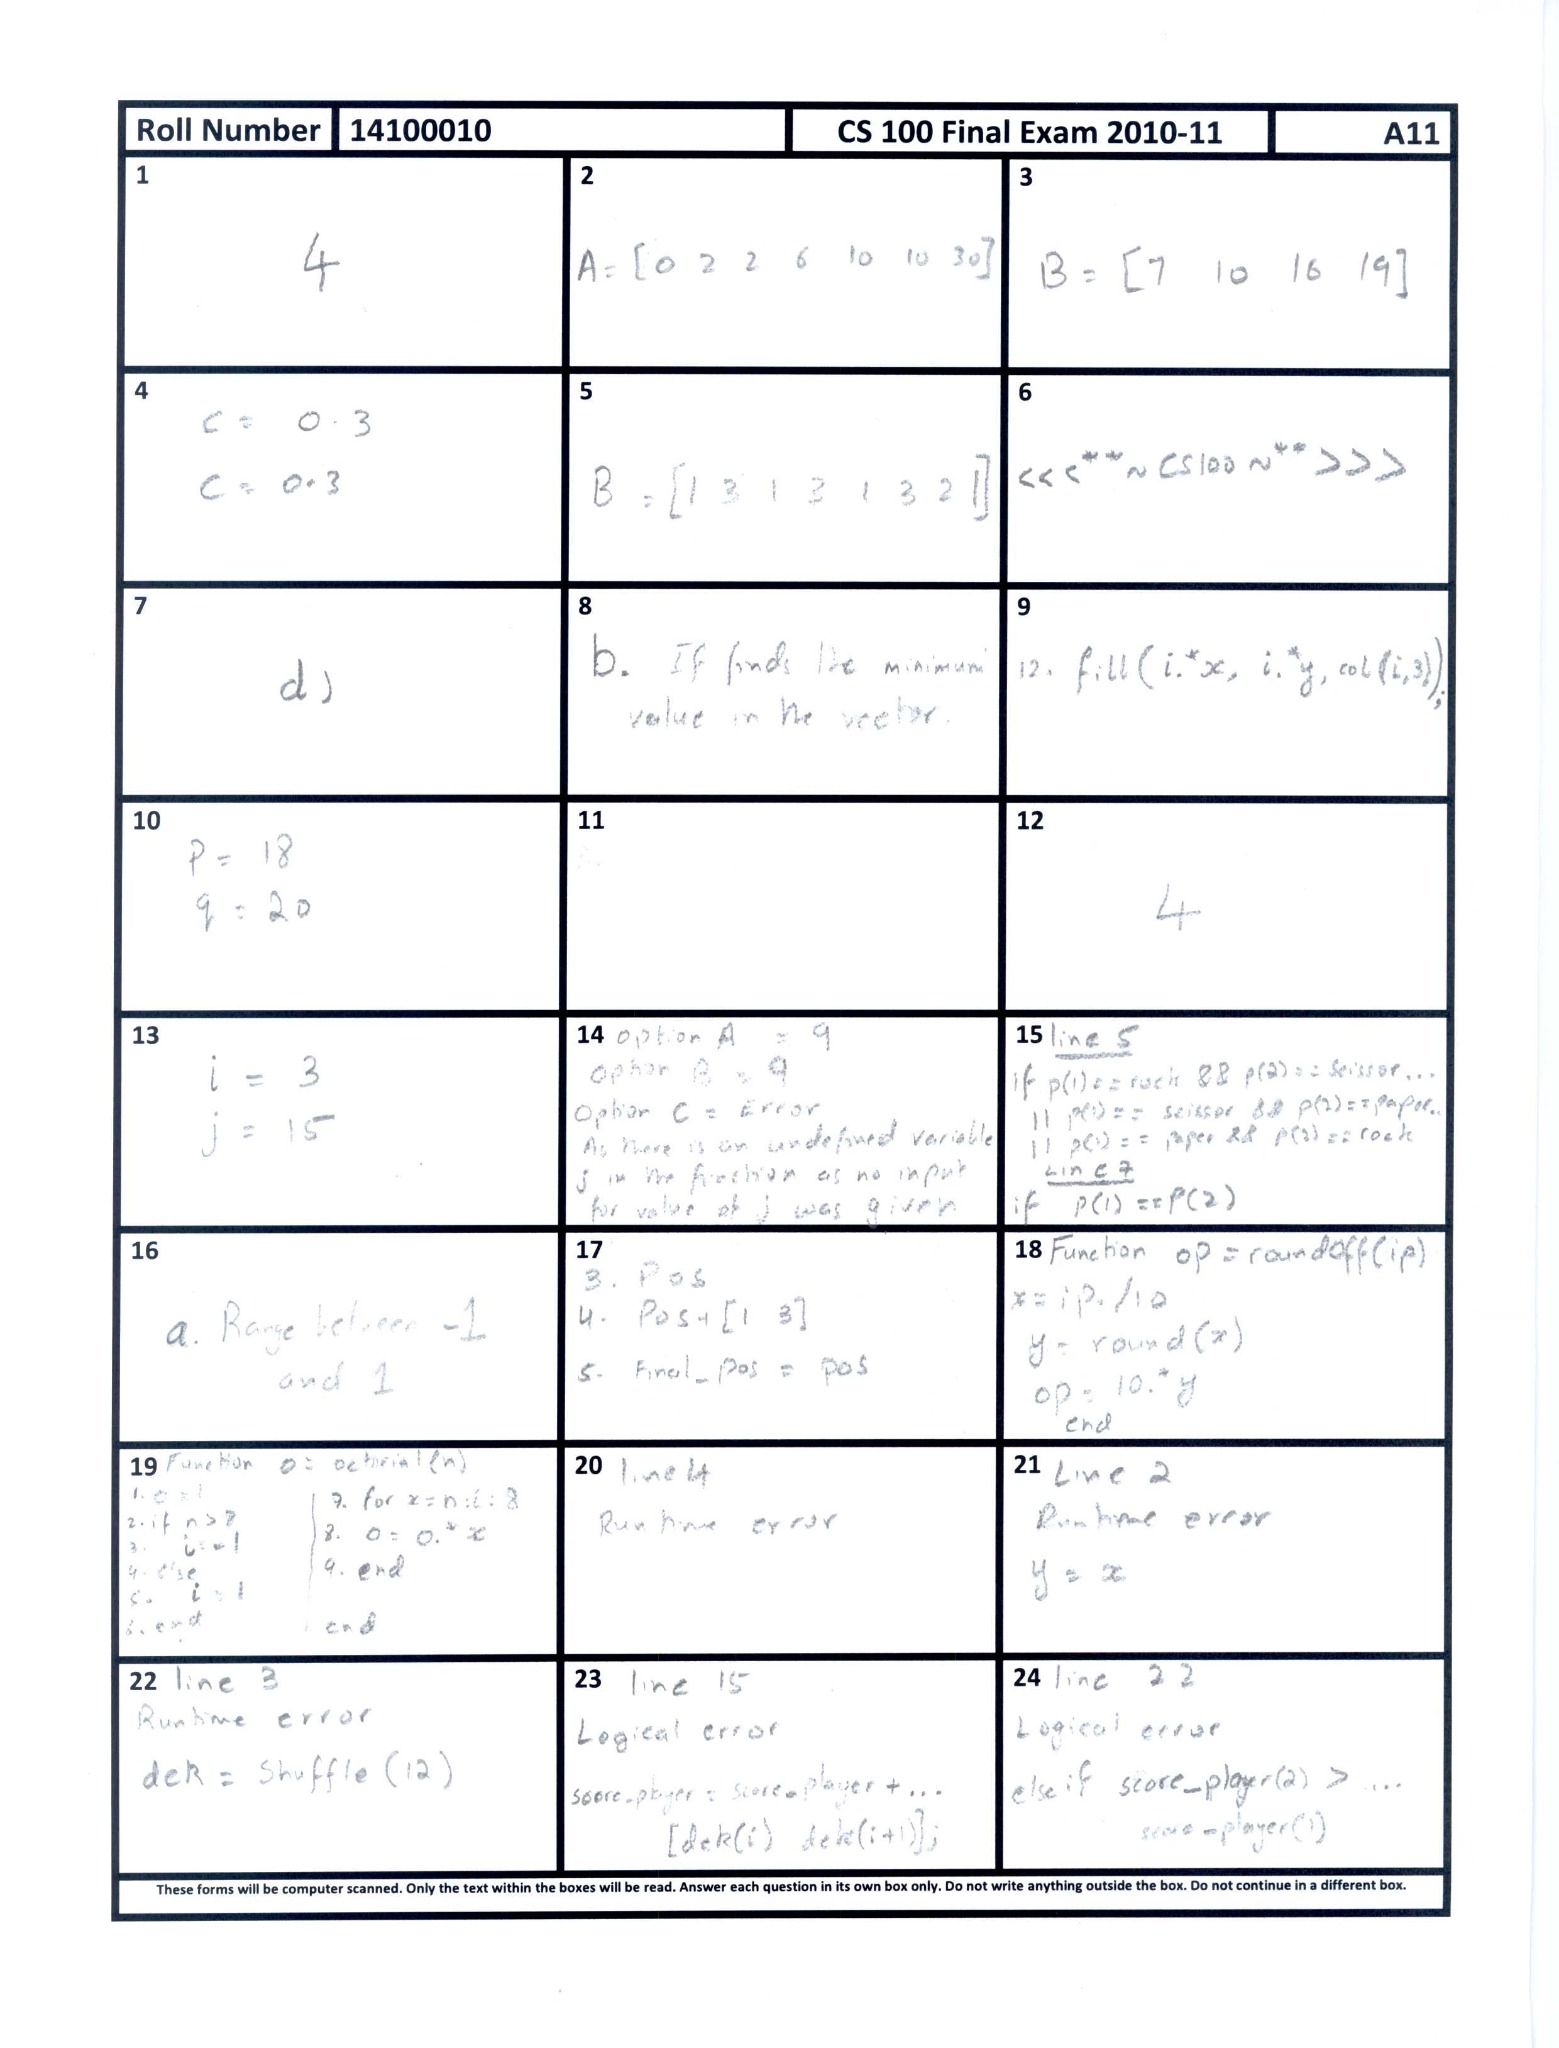 Roll Number 14100010 CS 100 Final Exam 2010-11 A11
1
4
2
A = [0 2 2 6 10 10 30]
3
B = [7 10 16 19]
4
C = 0.3
C = 0.3
5
B = [1 3 1 3 1 3 2 1]
6
<<<**~CS100~**>>>
7
d)
8
b. If finds the minimum
value in the vector.
9
12. fill(i.*x, i.*y, col(i,3));
10
P = 18
q = 20
11
12
4
13
i = 3
j = 15
14 option A = 9
option B = 9
Option C = Error
As there is an undefined variable
j in the function as no input
for value of j was given
15 line 5
if p(1)==rock && p(2)==scissor...
|| p(1)== scissor && p(2)==paper..
|| p(1)== paper && p(2)==rock
Line 7
if p(1)==P(2)
16
a. Range between -1
and 1
17
3. Pos
4. Pos+[1 3]
5. Final_pos = pos
18 Function op = roundoff(ip)
x = ip./10
y = round(x)
op = 10.*y
end
19 Function o = octorial(n)
1. o=1
2. if n>8
3. i=-1
4. else
5. i=1
6. end
7. for x=n:i:8
8. o = o.*x
9. end
end
20 line 4
Runtime error
21 Line 2
Runtime error
y = x
22 line 3
Runtime error
dek = Shuffle(12)
23 line 15
Logical error
score_player = score_player + ...
[dek(i) dek(i+1)];
24 line 22
Logical error
else if score_player(2) > ....
score_player(1)
These forms will be computer scanned. Only the text within the boxes will be read. Answer each question in its own box only. Do not write anything outside the box. Do not continue in a different box.